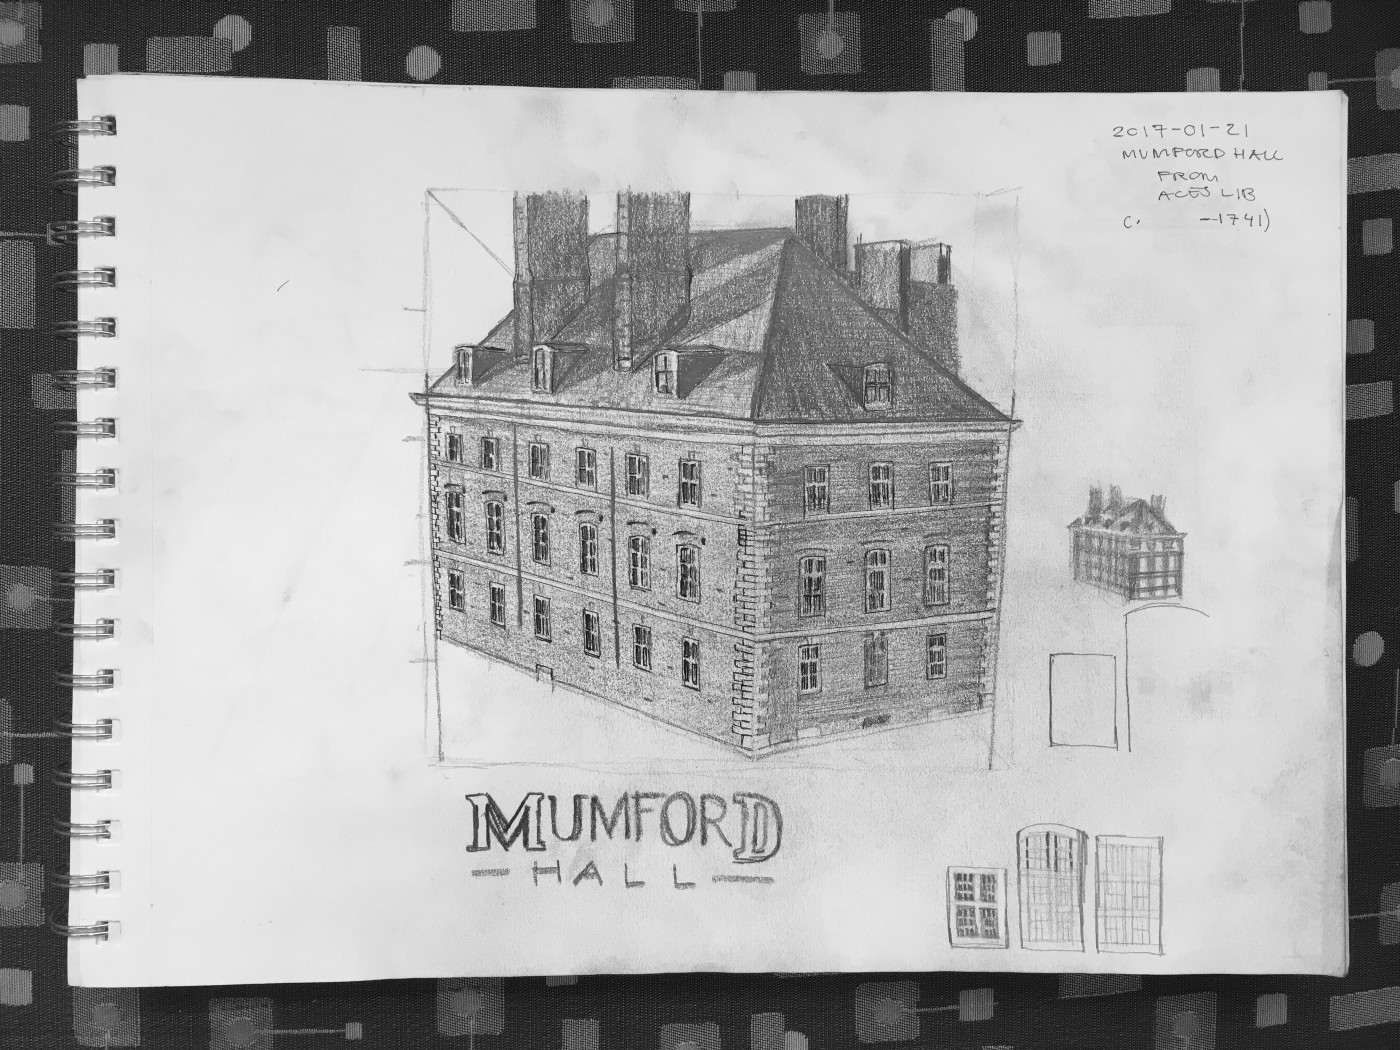 2017-01-21
MUMFORD HALL
FROM
ACES LIB
C. -1741)
MUMFORD
- HALL -